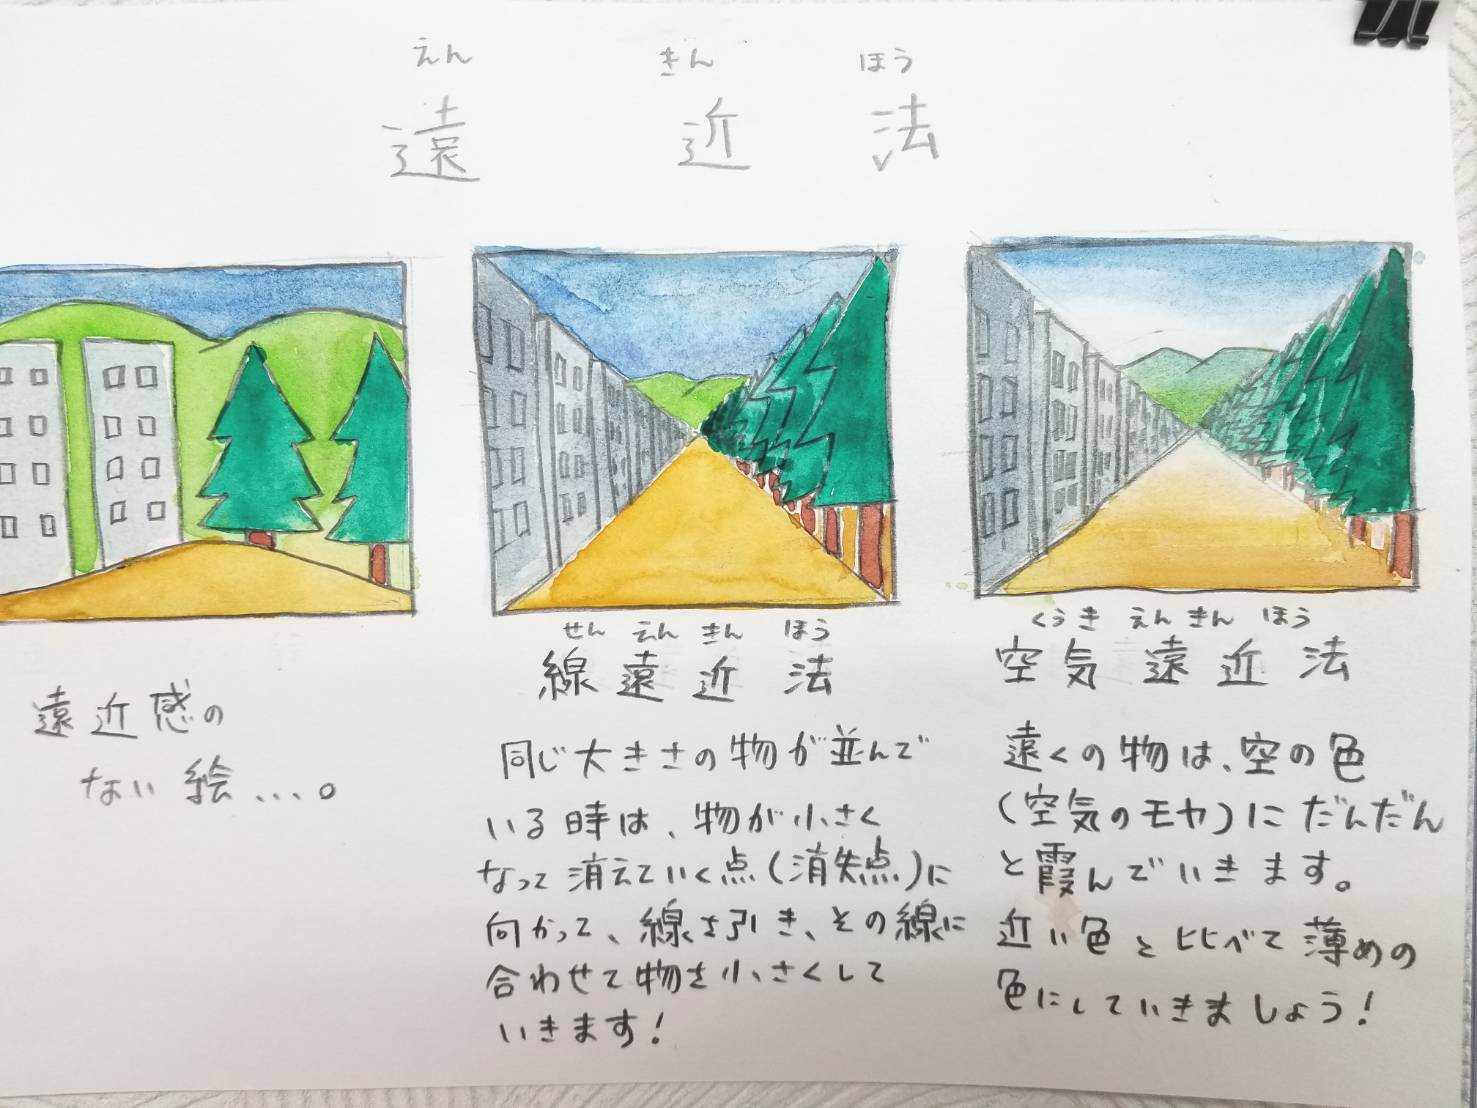 えん きん ほう
遠近法
遠近感の
ない絵...。
せん えん きん ほう
線遠近法
同じ大きさの物が並んで
いる時は、物が小さく
なって消えていく点(消失点)に
向かって、線を引き、その線に
合わせて物を小さくして
いきます!
くうき えん きん ほう
空気遠近法
遠くの物は、空の色
(空気のモヤ)にだんだん
と霞んでいきます。
近い色と比べて薄めの
色にしていきましょう!